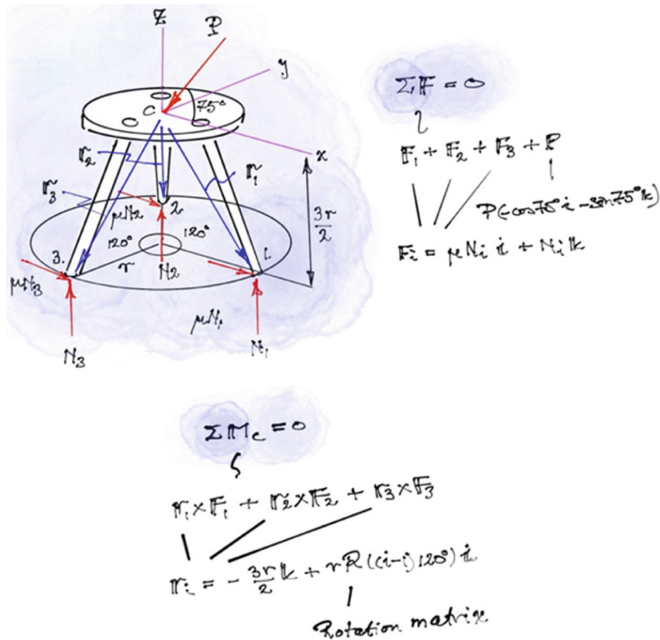 Z
P
y
C
75°
x
r₂
r₁
r₃
μN₂
2
3r/2
3.
120°
120°
1.
r
μN₃
N₂
μN₁
N₃
N₁
ΣF = 0
F₁ + F₂ + F₃ + P
P(-cos75° i - sin75° k)
Fi = μNi i + Ni k
ΣMc = 0
r₁×F₁ + r₂×F₂ + r₃×F₃
ri = - 3r/2 k + r R((i-1)120°) i
Rotation matrix